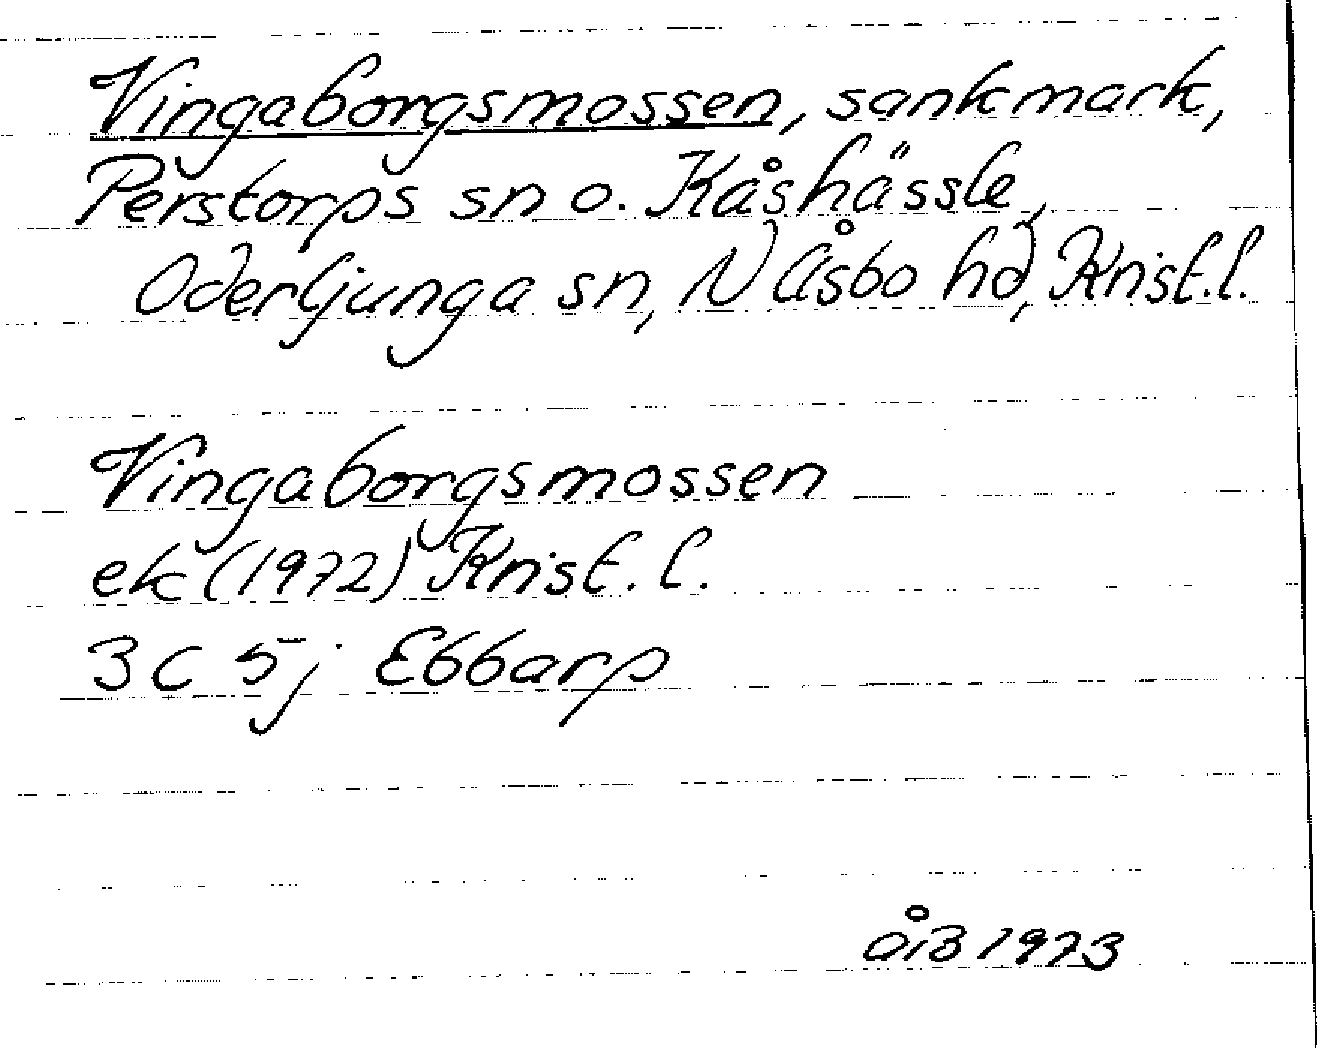 Vingaborgsmossen, sankmark,
Perstorps sn o. Kåshässle,
Oderljunga sn, N Åsbo hd, Krist. l.
Vingaborgsmossen
ek (1972) Krist. l.
3C 5j Ebbarp
åiB 1973